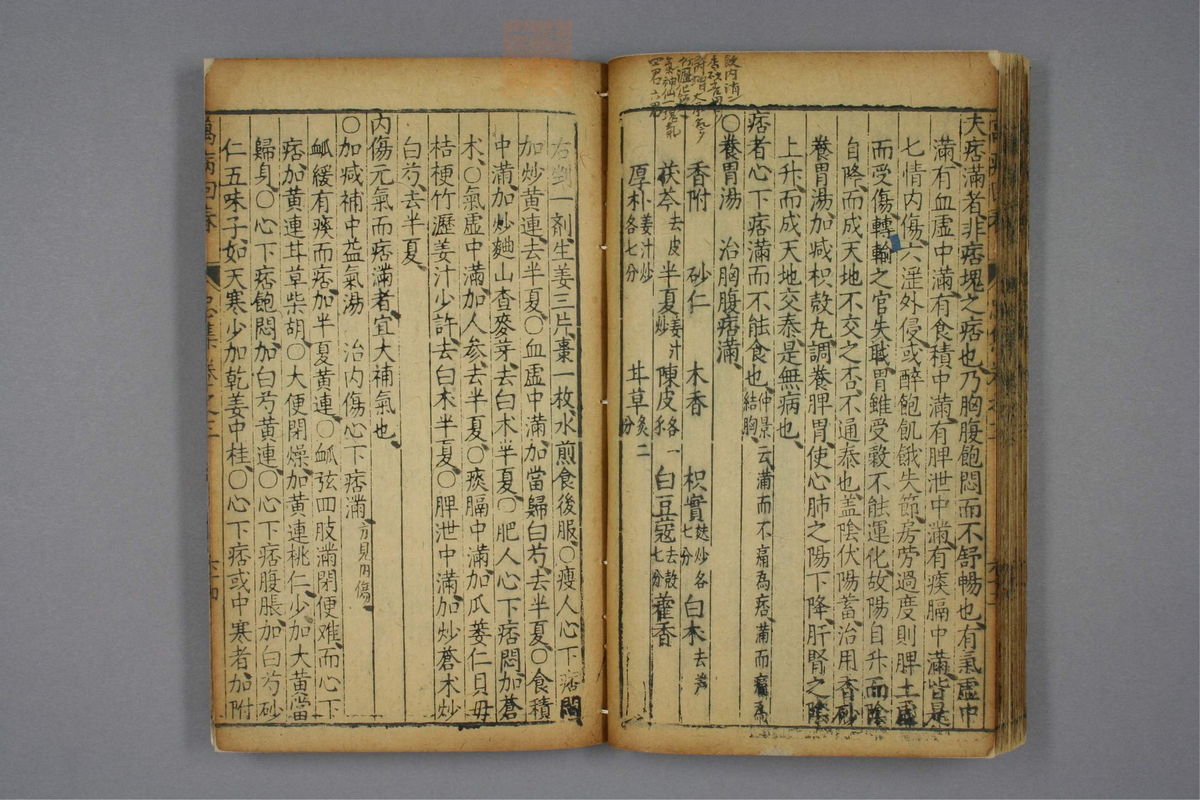 夫痞滿者非痞塊之痞也乃胸腹飽悶而不舒暢也有氣虛中
滿有血虛中滿有食積中滿有脾泄中滿有痰膈中滿皆是
七情內傷六淫外侵或醉飽飢餓失節房勞過度則脾土
而受傷轉輸之官失職胃雖受穀不能運化故陽自升而陰
自降而成天地不交之否不通泰也盖陰伏陽蓄治用香砂
養胃湯加减枳殼丸調養脾胃使心肺之陽下降肝腎之陰
上升而成天地交泰是無病也
痞者心下痞滿而不能食也仲景云滿而不痛為痞滿而痛為結胸
○養胃湯 治胸腹痞滿
香附 砂仁 木香 枳實麩炒各七分 白朮去芦
茯苓去皮 半夏姜汁炒 陳皮各一 白豆蔻去殼七分 藿香
厚朴姜汁炒各七分 甘草炙二分
右剉一劑生姜三片棗一枚水煎食後服○瘦人心下痞悶
加炒黃連去半夏○血虛中滿加當歸白芍去半夏○食積
中滿加炒麯山查麥芽去白朮半夏○肥人心下痞悶加蒼
朮○氣虛中滿加人参去半夏○痰膈中滿加瓜蔞仁貝毋
桔梗竹瀝姜汁少許去白朮半夏○脾泄中滿加炒蒼朮炒
白芍去半夏
內傷元氣而痞滿者宜大補氣也
○加减補中益氣湯 治內傷心下痞滿方見內傷
衇緩有痰而痞加半夏黃連○衇弦四肢滿閉便难而心下
痞加黃連甘草柴胡○大便閉燥加黃連桃仁少加大黃當
歸身○心下痞飽悶加白芍黃連○心下痞腹脹加白芍砂
仁五味子如天寒少加乾姜中桂○心下痞或中寒者加附